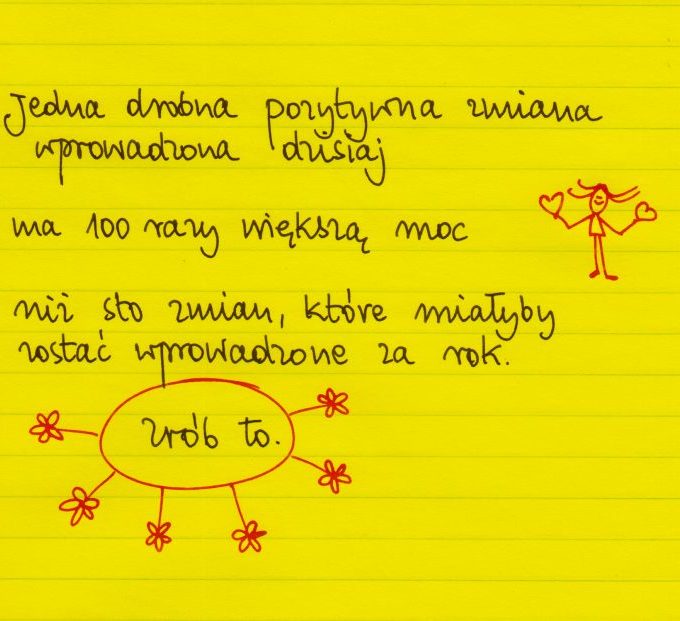 Jedna drobna pozytywna zmiana
wprowadzona dzisiaj
ma 100 razy większą moc
niż sto zmian, które miałyby
zostać wprowadzone za rok.
zrób to.